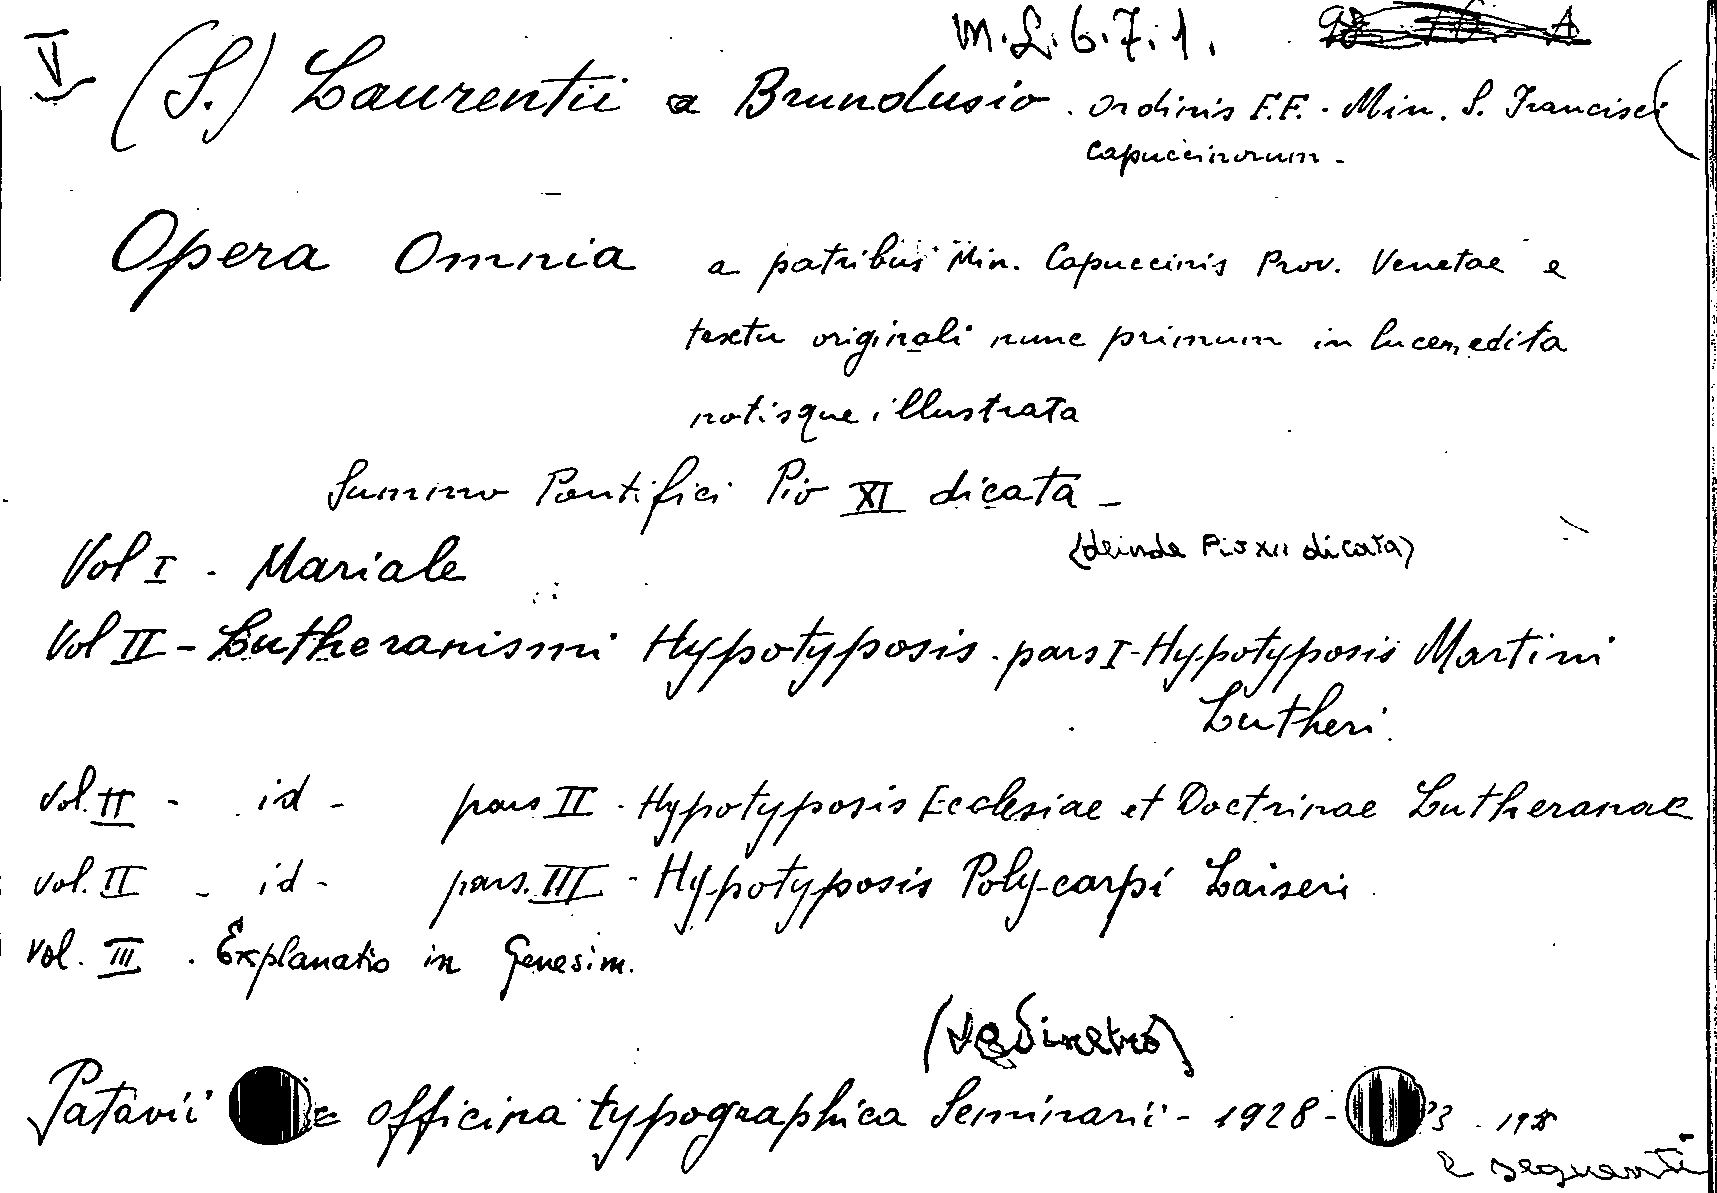 M.L.6.7.1.
V (S.) Laurentii a Brundusio. Ordinis F.F. - Min. S. Francisci
Capuccinorum -
Opera Omnia a patribus Min. Capuccinis Prov. Venetae e
textu originali nunc primum in lucem edita
notisque illustrata
Summo Pontifici Pio XI dicata -
(deinde Pio XII dicata)
Vol I - Mariale
Vol II - Lutheranismi Hypotyposis - pars I - Hypotyposis Martini
Lutheri.
vol. II - id - pars II - Hypotyposis Ecclesiae et Doctrinae Lutheranae
vol. II - id - pars. III - Hypotyposis Polycarpi Laiseri
vol. III . Explanatio in Genesim.
(vedi retro)
Patavii officina typographica Seminarii - 1928 -
e seguenti